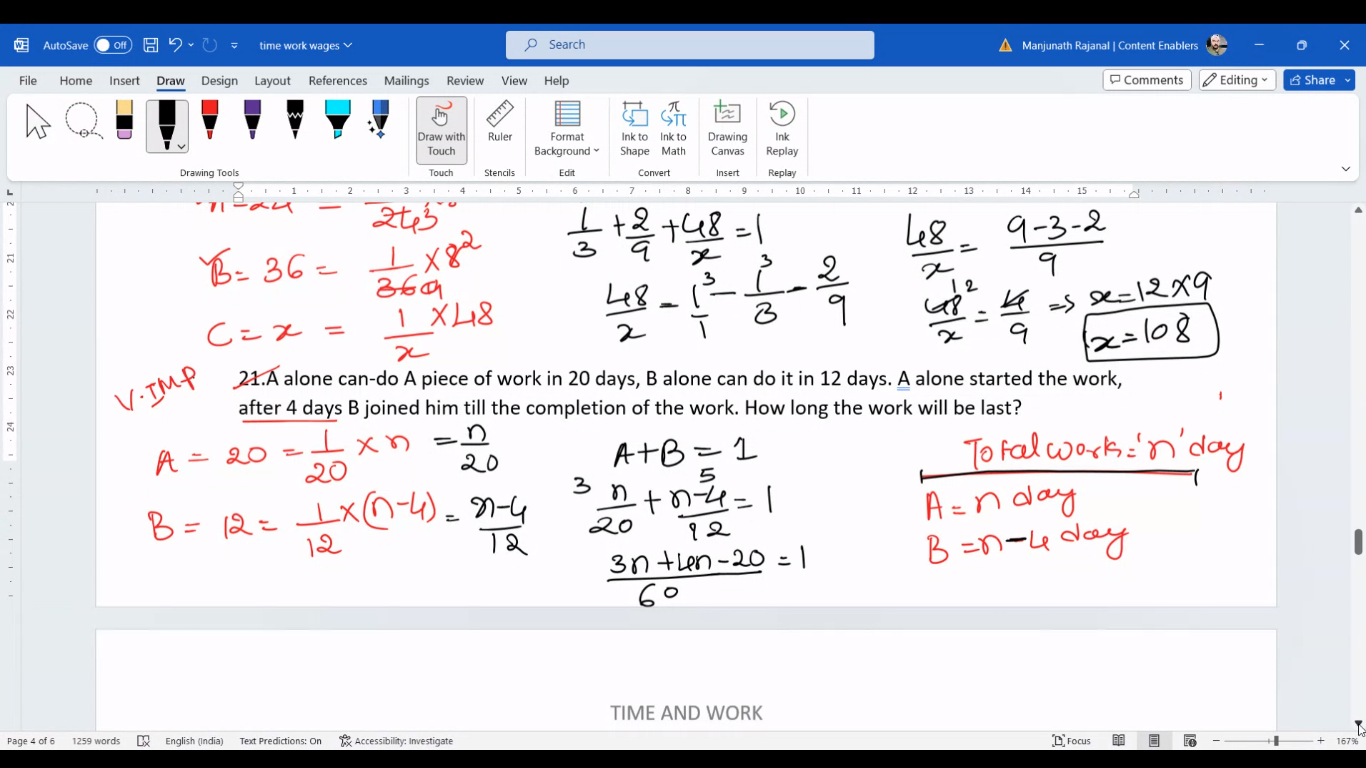 AutoSave Off time work wages Search Manjunath Rajanal | Content Enablers
File Home Insert Draw Design Layout References Mailings Review View Help Comments Editing Share
Draw with Touch Ruler Format Background Ink to Shape Ink to Math Drawing Canvas Ink Replay
Drawing Tools Touch Stencils Edit Convert Insert Replay
1 2 3 4 5 6 7 8 9 10 11 12 13 14 15
243
B = 36 = 1/36 × 8
C = x = 1/x × 48
1/3 + 2/9 + 48/x = 1
48/x = 1/1 - 1/3 - 2/9
48/x = 9-3-2/9
48/x = 4/9 => x = 12 × 9
x = 108
V.IMP
21.A alone can-do A piece of work in 20 days, B alone can do it in 12 days. A alone started the work,
after 4 days B joined him till the completion of the work. How long the work will be last?
A = 20 = 1/20 × n = n/20
B = 12 = 1/12 × (n-4) = n-4/12
A+B = 1
3 n/20 + 5 n-4/12 = 1
3n + 4n - 20/60 = 1
Total work = 'n' day
A = n day
B = n-4 day
TIME AND WORK
Page 4 of 6 1259 words English (India) Text Predictions: On Accessibility: Investigate Focus 167%